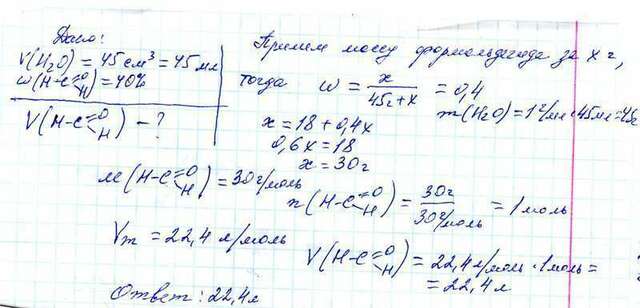 Дано:
V(H₂O) = 45 см³ = 45 мл
ω(H-C=O H) = 40%
V(H-C=O H) - ?
Примем массу формальдегида за x г,
тогда ω = x / 45г+x = 0,4
m(H₂O) = 1г/мл·45мл=45г
x = 18 + 0,4x
0,6x = 18
x = 30г
M(H-C=O H) = 30г/моль
n(H-C=O H) = 30г / 30г/моль = 1 моль
Vm = 22,4 л/моль
V(H-C=O H) = 22,4 л/моль · 1 моль =
= 22,4 л
Ответ: 22,4л